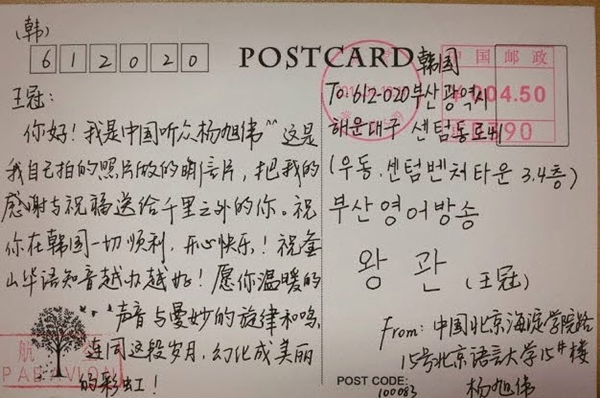 (韩)
612020
POSTCARD
王冠：
你好！我是中国听众杨旭伟^^这是
我自己拍的照片做的明信片，把我的
感谢与祝福送给千里之外的你。祝
你在韩国一切顺利，开心快乐！祝釜
山华语知音越办越好！愿你温暖的
声音与曼妙的旋律和鸣
连同这段岁月，幻化成美丽
的彩虹！
航
PAR AVION
韩国
中国邮政
To: 612-020 부산광역시
¥004.50
해운대구 센텀동로41
90
(우동.센텀벤처타운 3.4층)
부산영어방송
왕관 (王冠)
From: 中国北京海淀学院路
15号北京语言大学15#楼
POST CODE:
100083
杨旭伟